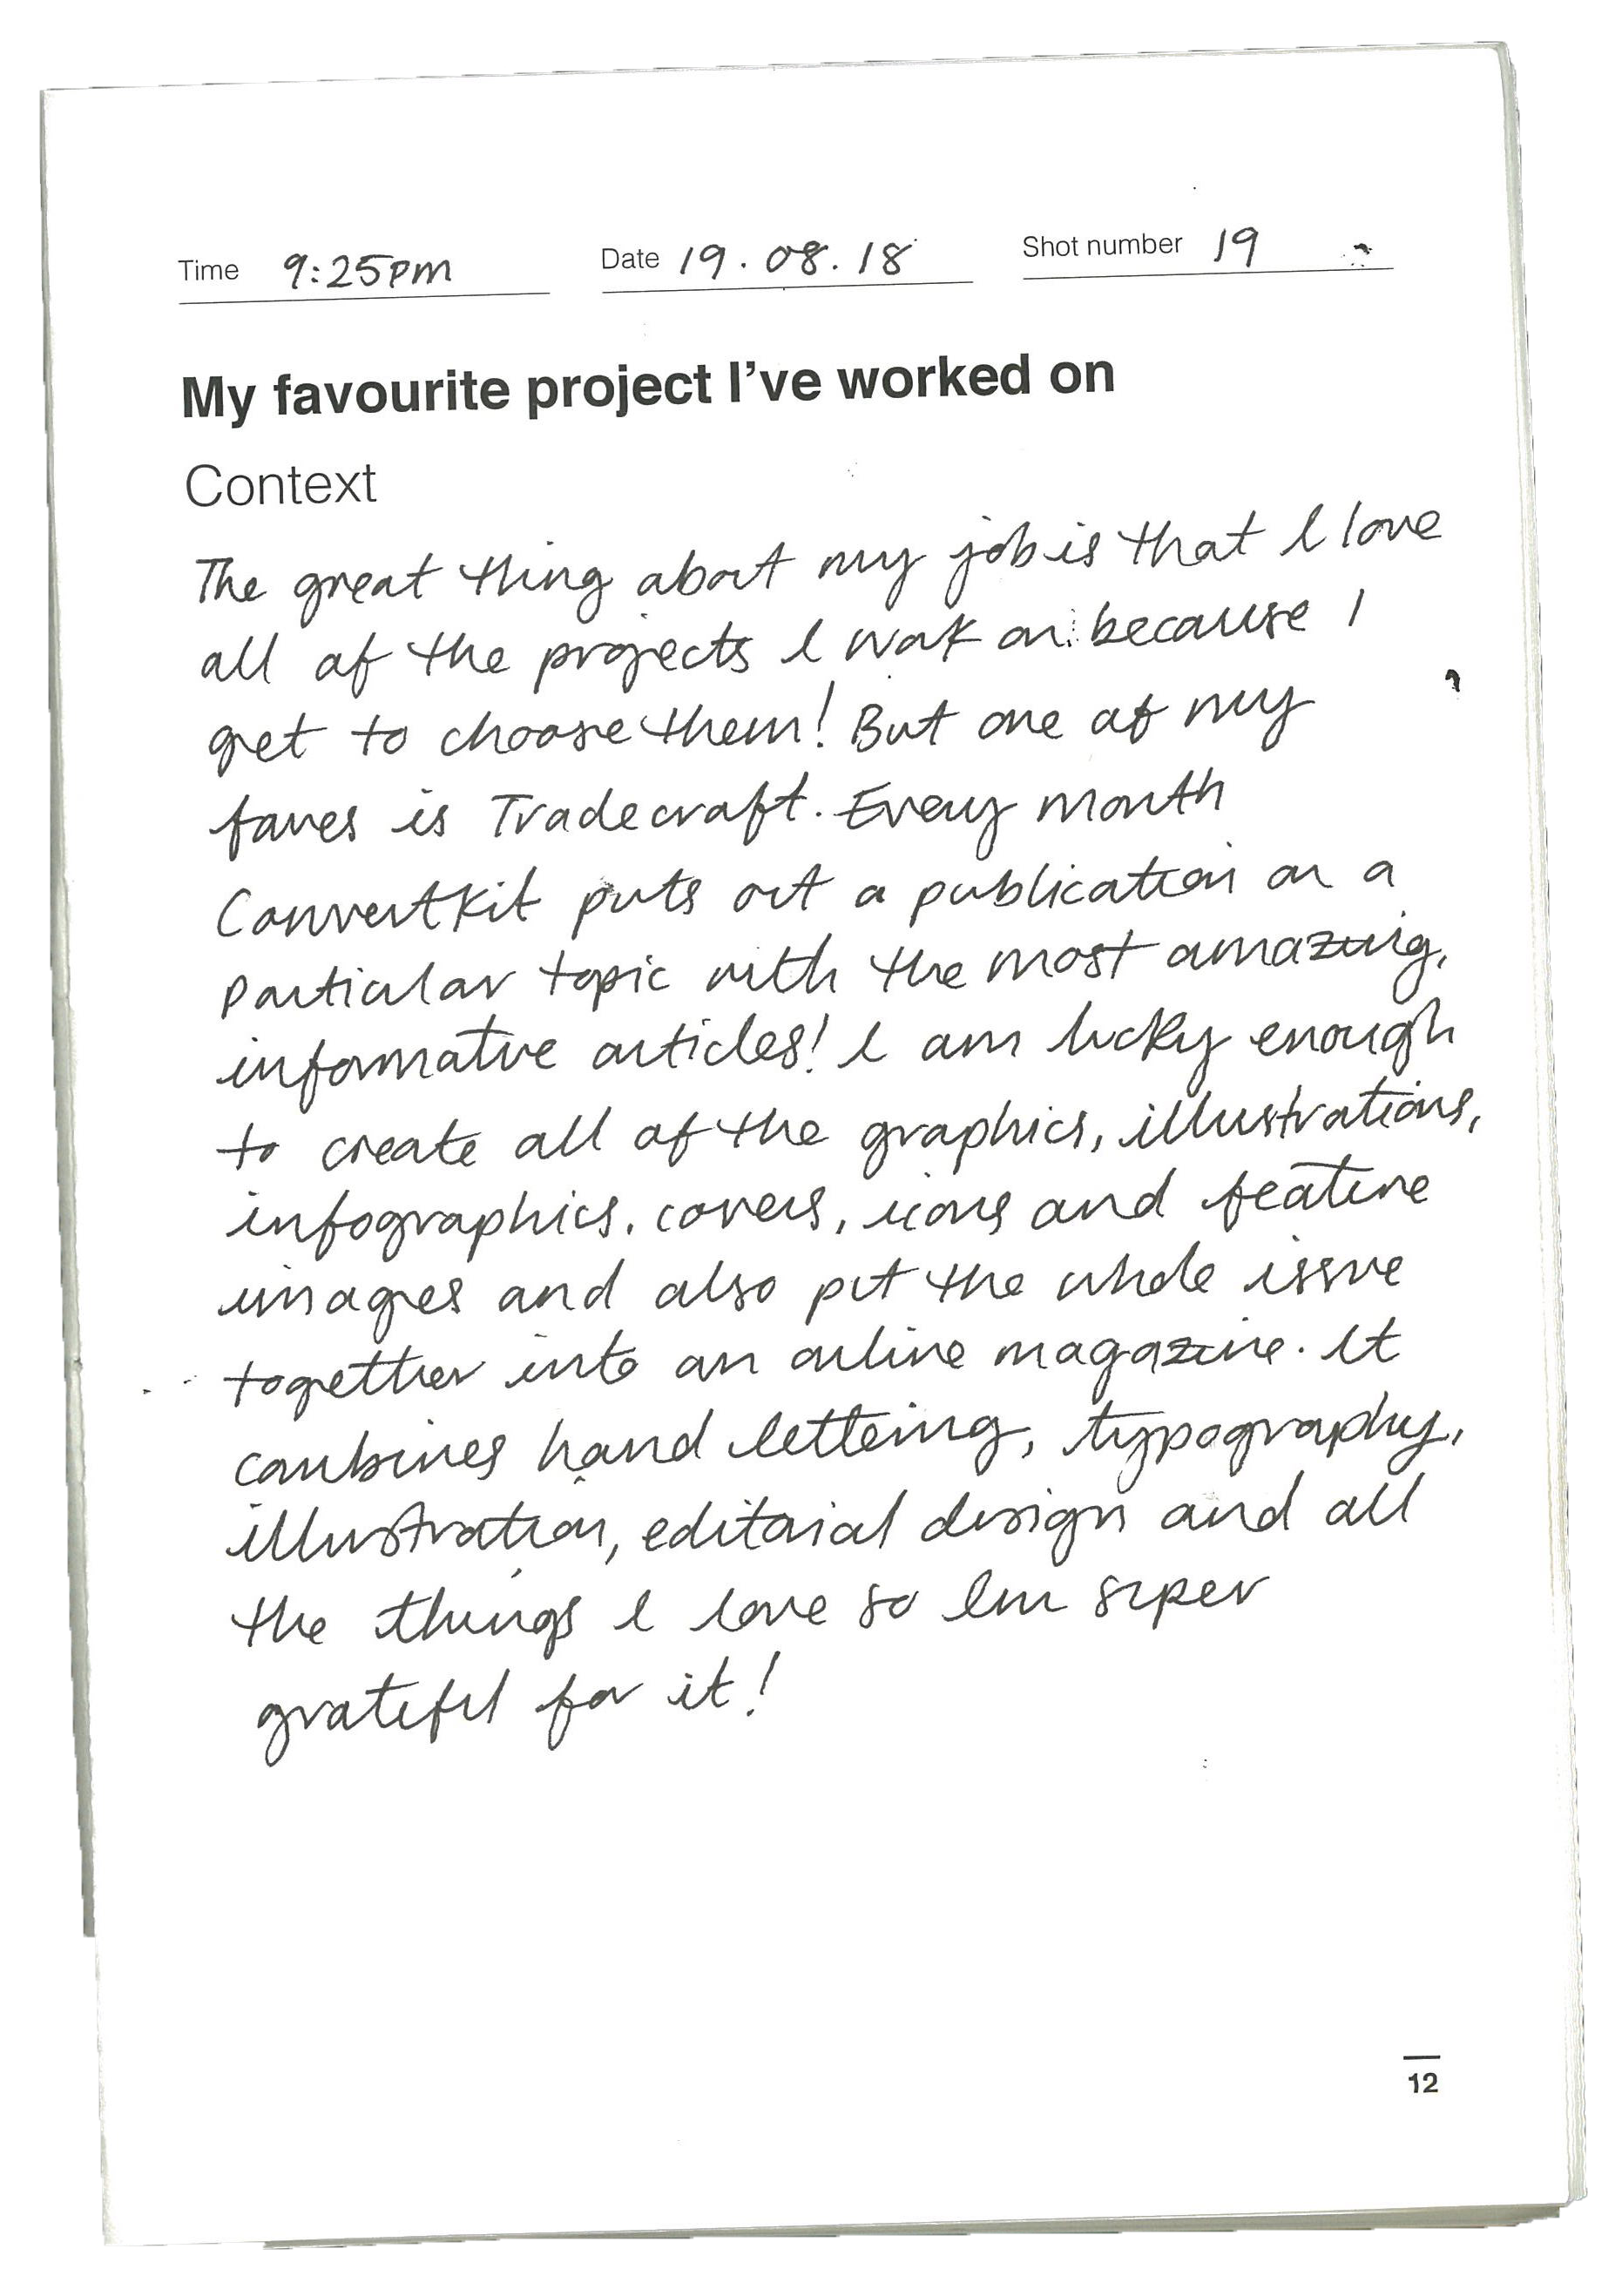 Time 9:25pm Date 19.08.18 Shot number 19
My favourite project I've worked on
Context
The great thing about my job is that I love
all of the projects I work on because I
get to choose them! But one of my
faves is Tradecraft. Every month
ConvertKit puts out a publication on a
particular topic with the most amazing,
informative articles! I am lucky enough
to create all of the graphics, illustrations,
infographics, covers, icons and feature
images and also put the whole issue
together into an online magazine. It
combines hand lettering, typography,
illustration, editorial design and all
the things I love so Im super
grateful for it!
12